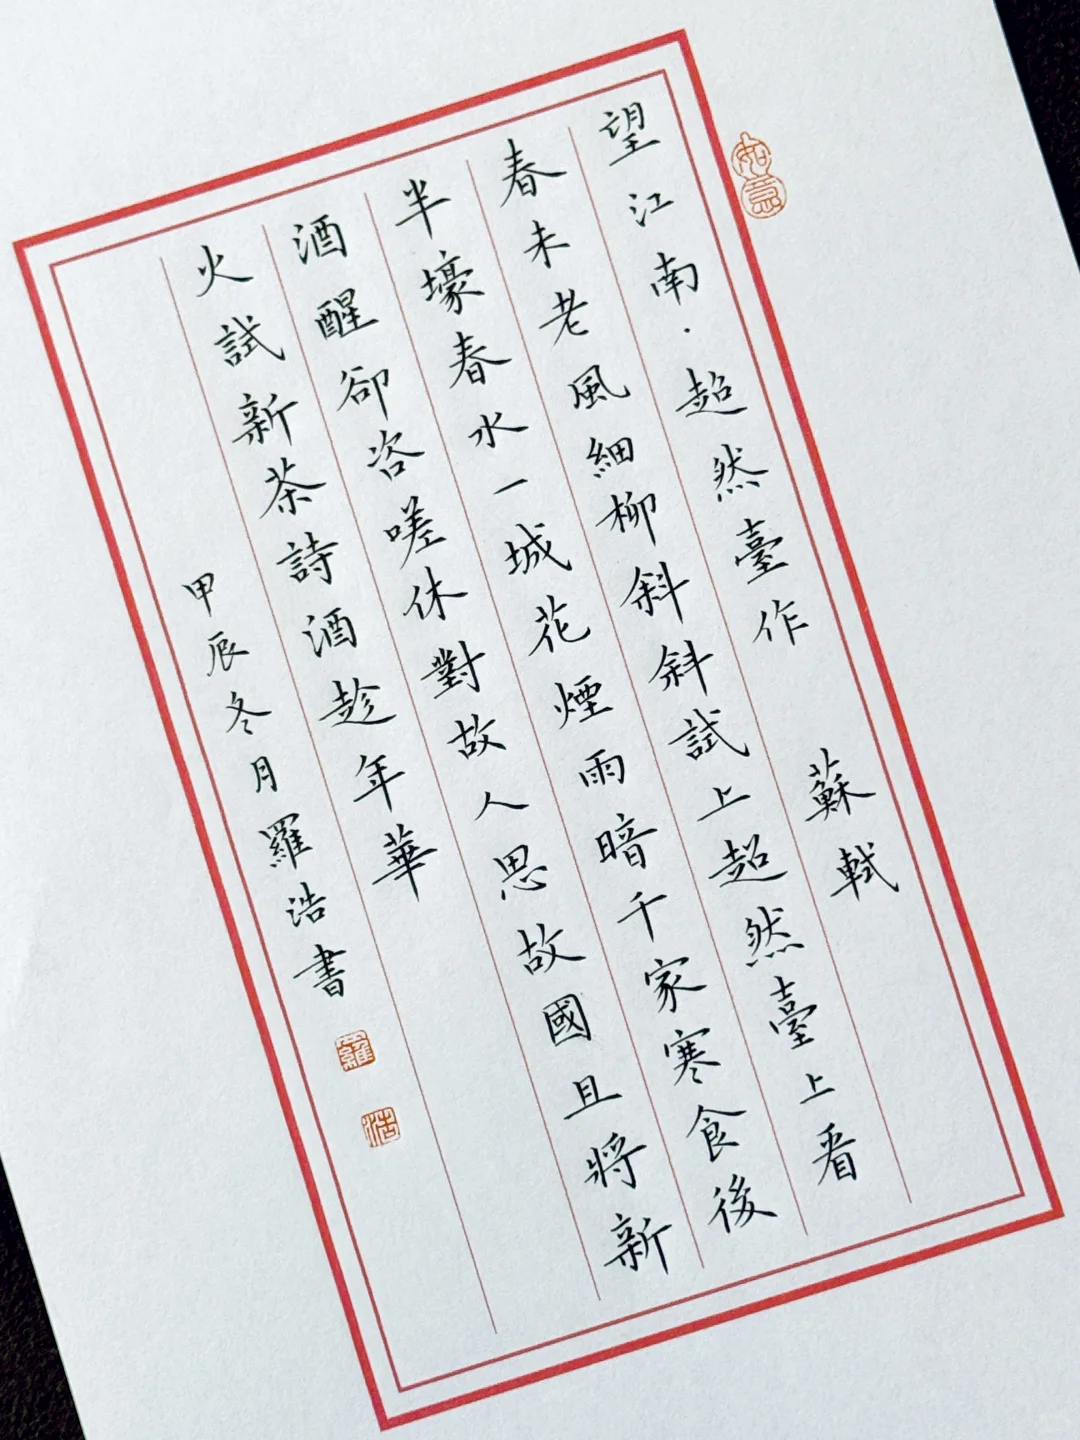 望江南·超然臺作 蘇軾
春未老風細柳斜斜試上超然臺上看
半壕春水一城花煙雨暗千家寒食後
酒醒卻咨嗟休對故人思故國且將新
火試新茶詩酒趁年華
甲辰冬月羅浩書
如意
羅
浩